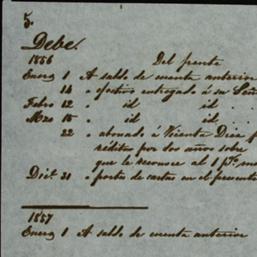 5.
Debe.
1856 Del frente
Enero 1 A saldo de cuenta anterior
14 " efectivo entregado á su Señ
Febro 12 " id id . .
Mzo 15 " id id . . .
22 " abonado á Vicenta Diez p
réditos por dos años sobre
que le reconoce al 1 p% m
Dice 31 " portes de cartas en el presente
1857
Enero 1 A saldo de cuenta anterior